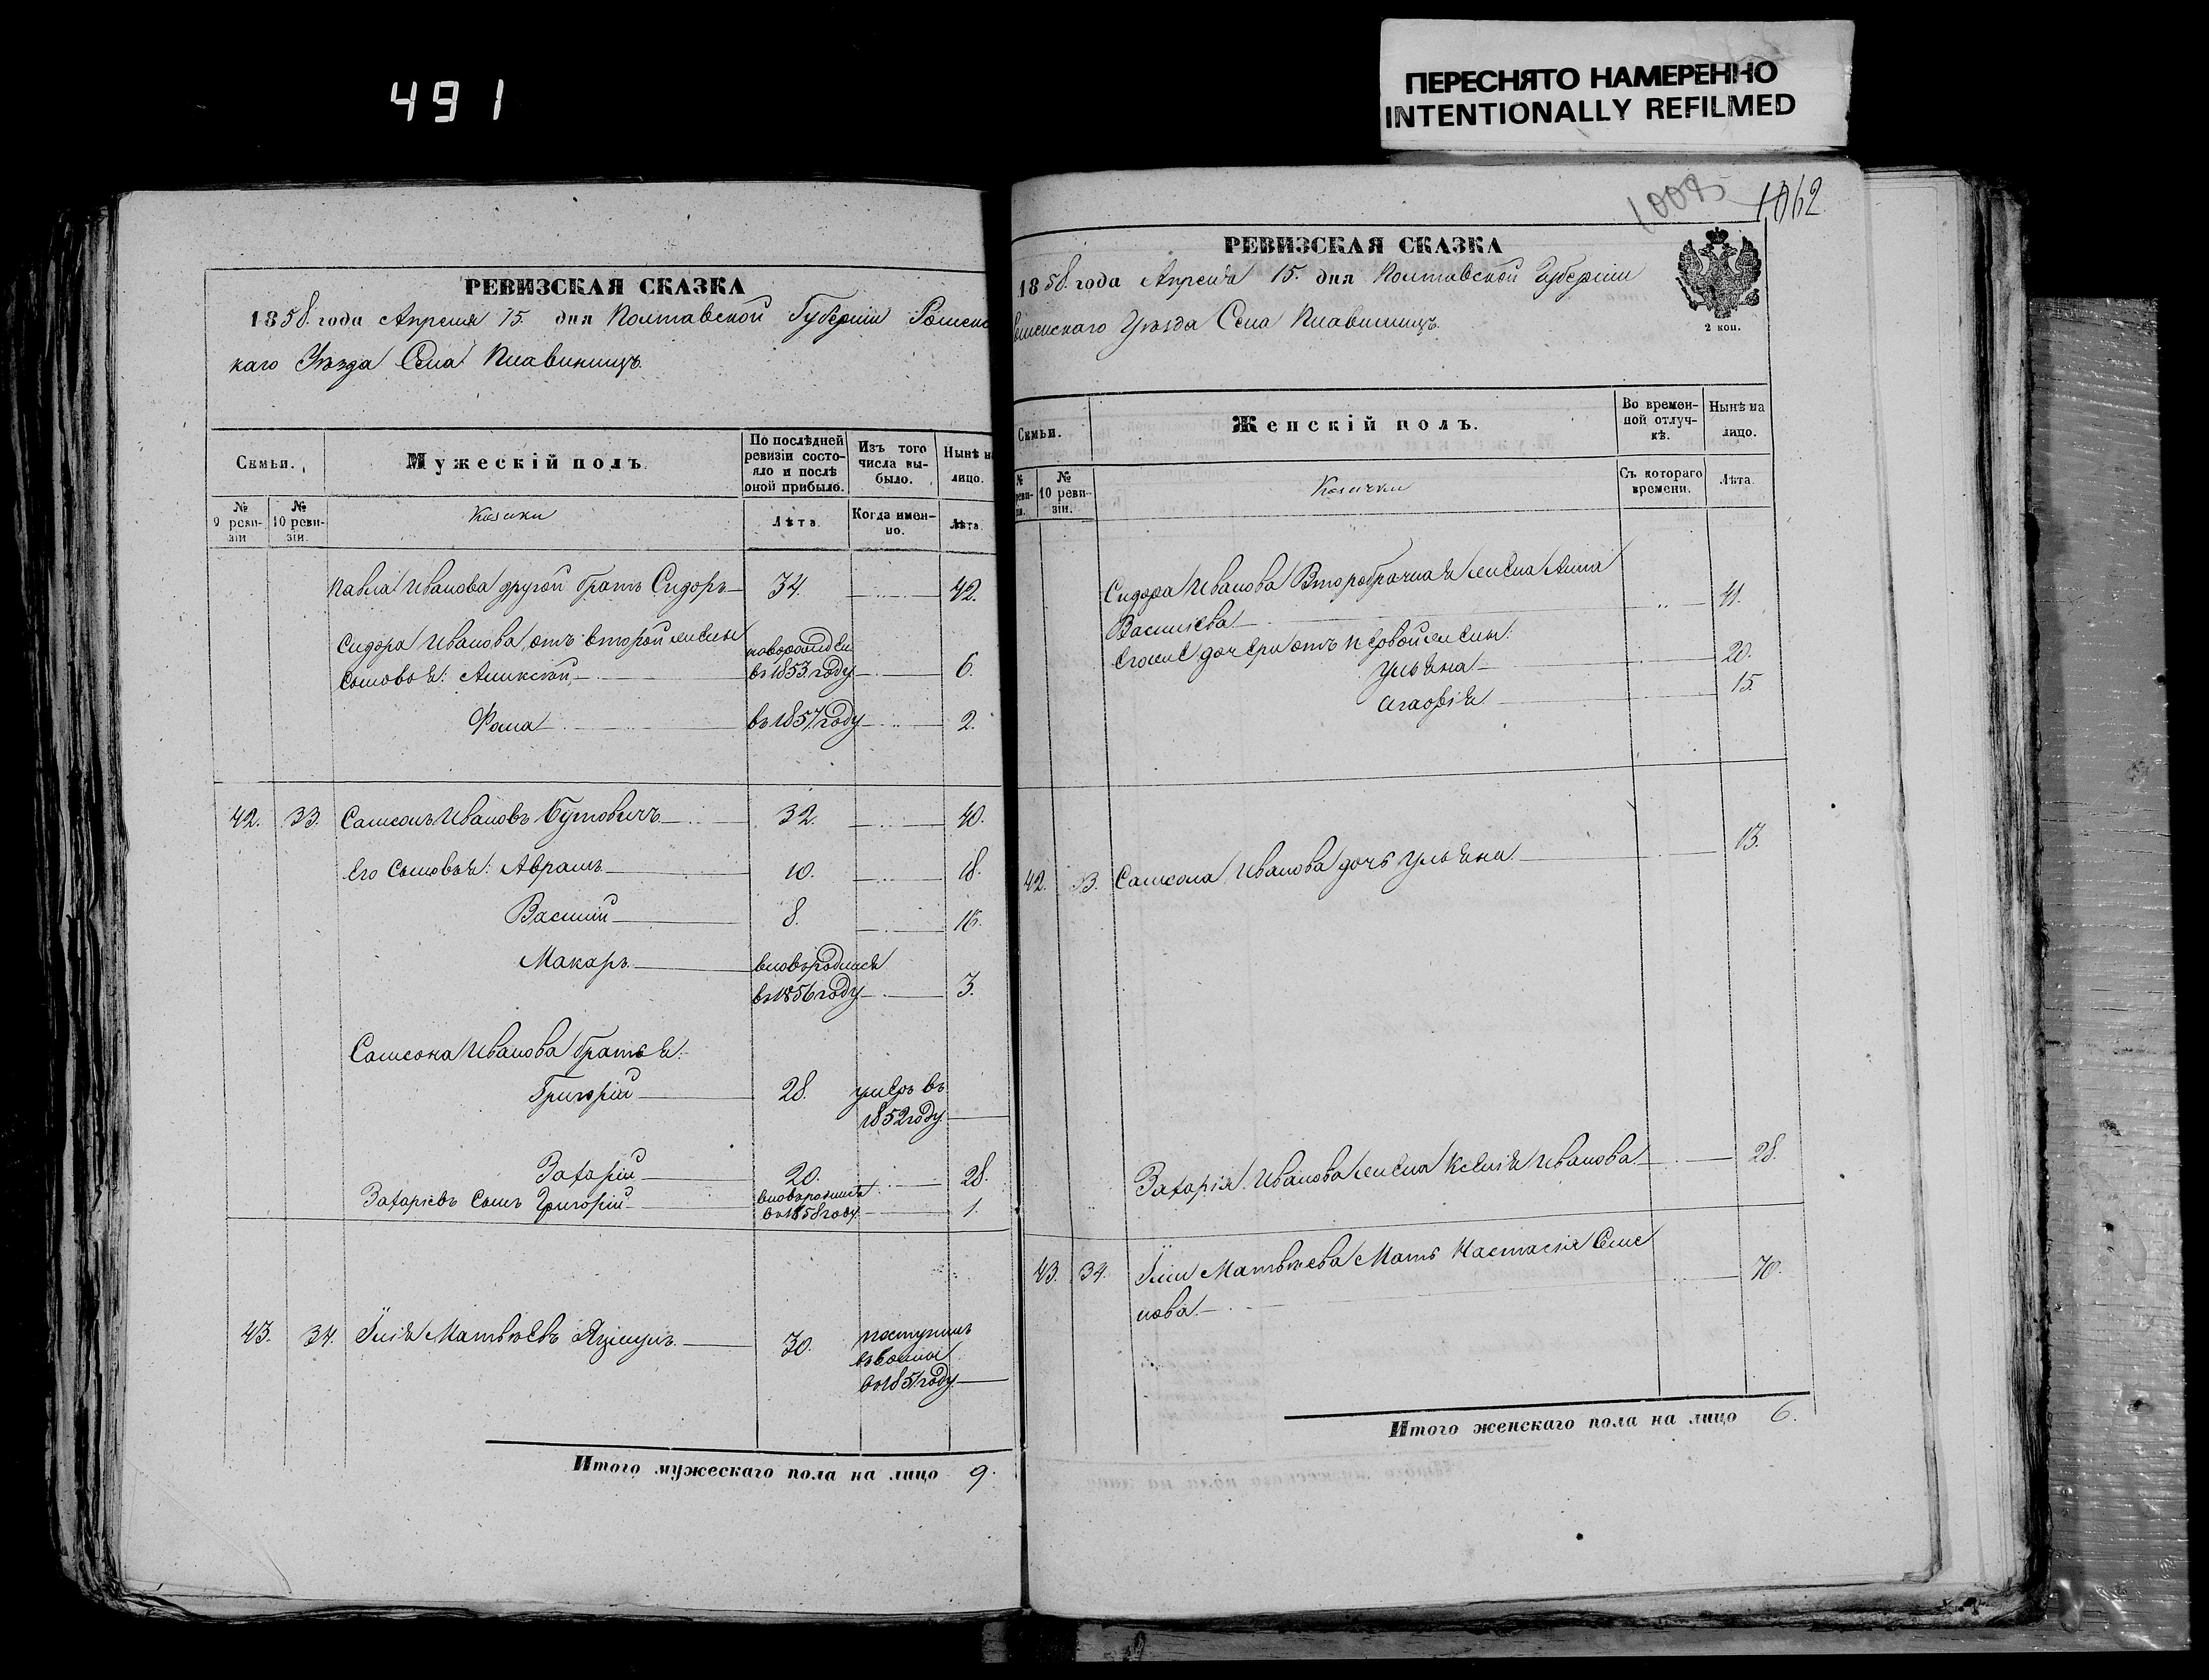 491
ПЕРЕСНЯТО НАМЕРЕННО
INTENTIONALLY REFILMED
РЕВИЗСКАЯ СКАЗКА
1858. года Апреля 15. дня Полтавской Губерніи Роменс
каго Уѣзда Села Плавинищъ.
Семьи.
Мужескій полъ.
По послѣдней ревизіи состояло и послѣ оной прибыло.
Изъ того числа выбыло.
Нынѣ на лицо.
№ 9 ревизіи
№ 10 ревизіи.
Козаки
Лѣта
Когда именно.
Лѣта
Павла Иванова другой братъ Сидоръ 34. 42.
Сидора Иванова, отъ второй жены
сыновья: Алексѣй, въ 1853 году 6.
Фома въ 1857 году 2.
42. 33. Самсонъ Ивановъ Бутовичъ 32. 40.
Его сыновья: Аврамъ 10. 18.
Василій 8. 16.
Макаръ вновьродился
въ 1856 году 3.
Самсона Иванова братья:
Григорій 28. умеръ въ
1852 году
Захарій 20. 28.
Захаріевъ сынъ Григорій вновьродился
въ 1858 году. 1.
43. 34. Илія Матвѣевъ 30. поступилъ
въ 1851 году
Итого мужескаго пола на лицо 9.
10085
1062
РЕВИЗСКАЯ СКАЗКА
1858. года Апреля 15. дня Полтавской Губерніи
оменскаго Уѣзда Села Плавинищъ.
2 коп.
Семьи.
Женскій полъ.
Во временной отлучкѣ.
Нынѣ на лицо.
№ реви-
№ 10 ревизіи.
Козачки
Съ котораго времени.
Лѣта
Сидора Иванова Второбрачная жена Анна
Васильева 41.
Его же дочери отъ первой жены:
Ульяна 20.
Агафія 15.
42. 33. Самсона Иванова дочь Ульяна 13.
Захарія Иванова жена Ксенія Иванова 28.
43. 34. Иліи Матвѣева Мать Настасія Семе
нова 70.
Итого женскаго пола на лицо 6.